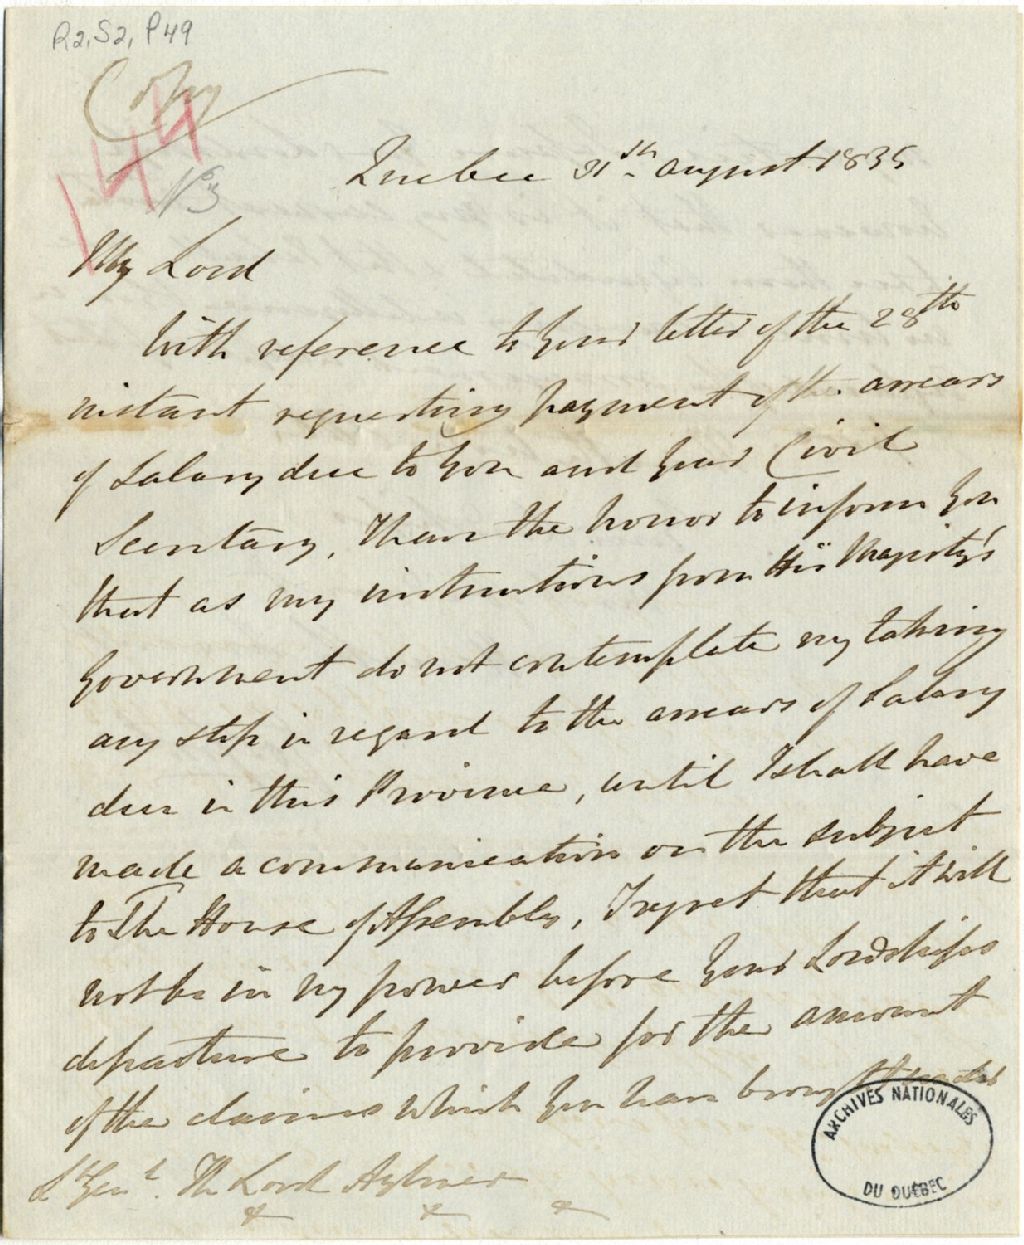 R2, S2, P49
Copy
144
No 3
Quebec 31th August 1835
My Lord
With reference to your letter of the 28th
instant requesting payment of the arrears
of Salary due to you and your Civil
Secretary, I have the honor to inform you
that as my instructions from His Majesty's
Government do not contemplate my taking
any step in regard to the arrears of Salary
due in this Province, until I shall have
made a communication on the subject
to The House of Assembly, I regret that it will
not be in my power before your Lordships
departure to provide for the amount
of the claims which you have brought under
ARCHIVES NATIONALES
DU QUÉBEC
Lt Genl. The Lord Aylmer
&c &c &c